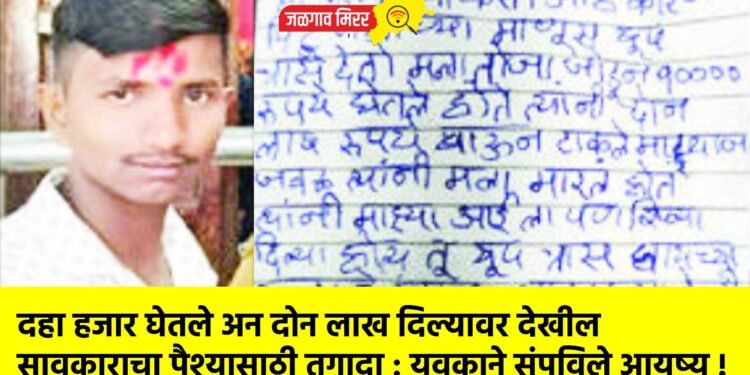 जळगाव मिरर
माणूस खूप
त्रास देतो मला १००००
रुपये घेतले होते त्यांनी दोन
लाख रुपये खाऊन टाकले
त्यांनी मला मारले होते
त्यांनी माझ्या आई ला पण शिव्या
दिल्या होय तू खूप त्रास
दहा हजार घेतले अन दोन लाख दिल्यावर देखील
सावकाराचा पैश्यासाठी तगादा : युवकाने संपविले आयुष्य !